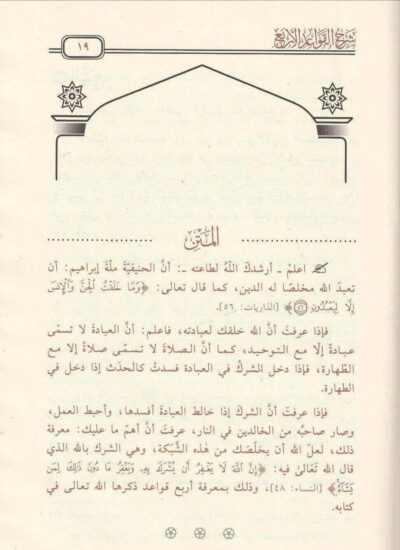 شرح القواعد الأربع
١٩
المتن
اعلمْ ـ أرشدكَ اللَّهُ لطاعته ـ: أنَّ الحنيفيَّة ملَّةَ إبراهيم: أن
تعبدَ الله مخلصًا له الدين، كما قال تعالى: ﴿وَمَا خَلَقْتُ ٱلْجِنَّ وَٱلْإِنسَ
إِلَّا لِيَعْبُدُونِ ٥٦﴾ [الذاريات: ٥٦].
فإذا عرفتَ أنَّ الله خلقك لعبادته، فاعلم: أن العبادةَ لا تسمَّى
عبادةً إلَّا مع التوحيد، كما أنَّ الصلاةَ لا تسمَّى صلاةً إلا مع
الطَّهارة، فإذا دخل الشركُ في العبادة فسدتْ كالحدَث إذا دخل في
الطهارة.
فإذا عرفتَ أنَّ الشركَ إذا خالط العبادةَ أفسدها، وأحبط العمل،
وصار صاحبُه من الخالدين في النار، عرفتَ أنَّ أهمَّ ما عليك: معرفة
ذلك، لعلَّ الله أن يخلِّصك من هٰذه الشَّبَكة، وهي الشرك بالله الذي
قال الله تَعَالىٰ فيه: ﴿إِنَّ ٱللَّهَ لَا يَغْفِرُ أَن يُشْرَكَ بِهِۦ وَيَغْفِرُ مَا دُونَ ذَٰلِكَ لِمَن
يَشَآءُ﴾ [النساء: ٤٨]، وذلك بمعرفة أربع قواعد ذكرها الله تعالى في
كتابه.